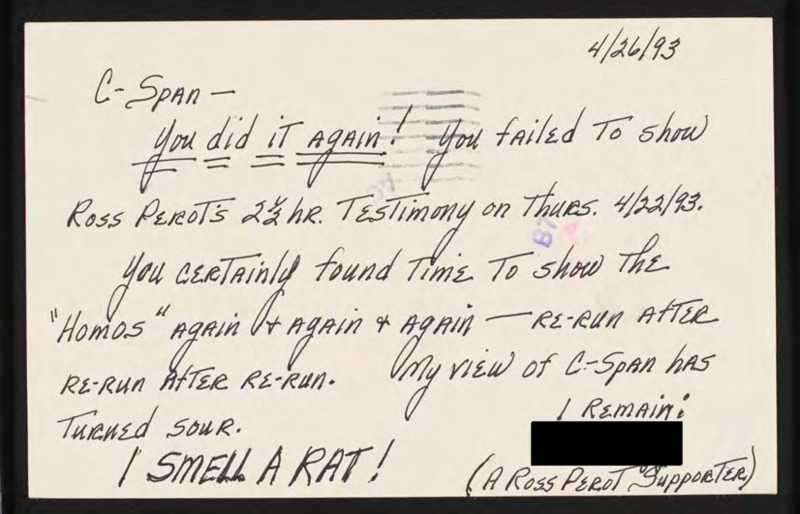 4/26/93
C-Span—
You did it again! You failed to show
Ross Perot's 2½ hr. Testimony on Thurs. 4/22/93.
You certainly found time to show the
"Homos" again & again & again — re-run after
re-run after re-run. My view of C-Span has
turned sour.
I Remain:
I SMELL A RAT!
(A Ross Perot Supporter)